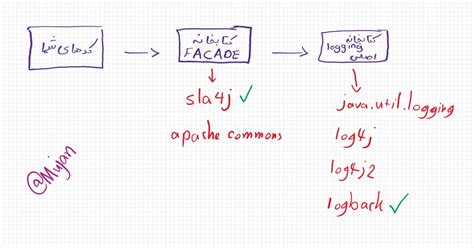 کدهای شما
کتابخانه
FACADE
کتابخانه
logging
اصلی
sla4j ✓
apache commons
java.util.logging
log4j
log4j2
logback ✓
@Mujan